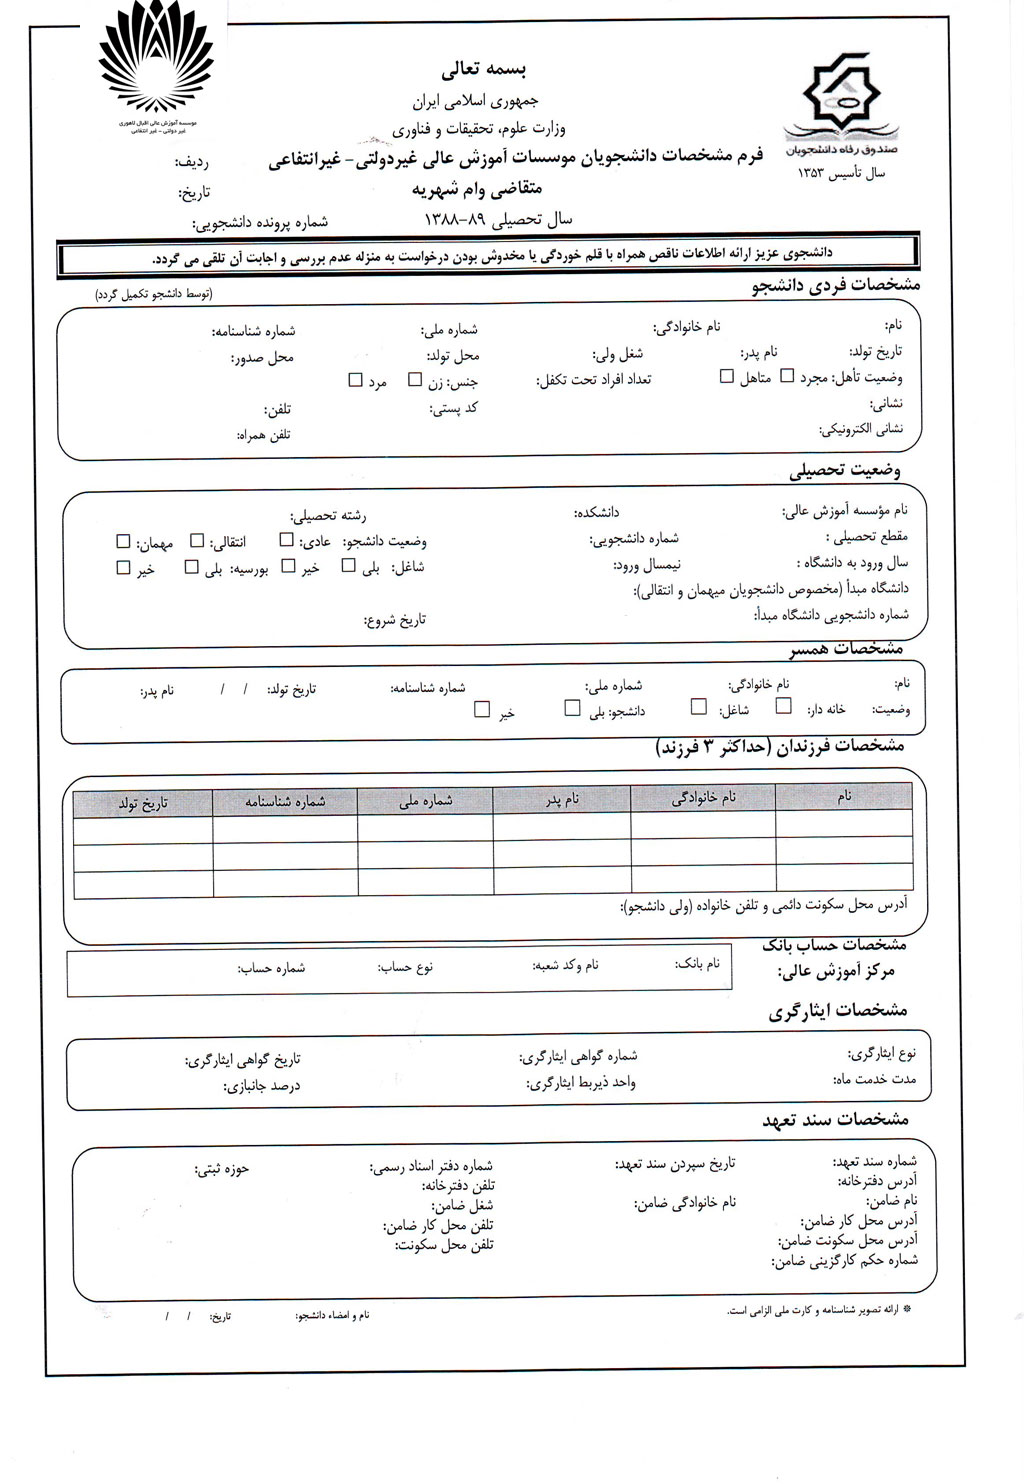 بسمه تعالی
جمهوری اسلامی ایران
وزارت علوم، تحقیقات و فناوری
فرم مشخصات دانشجویان موسسات آموزش عالی غیردولتی- غیرانتفاعی
متقاضی وام شهریه
سال تحصیلی ۸۹-۱۳۸۸
صندوق رفاه دانشجویان
سال تأسیس ۱۳۵۳
موسسه آموزش عالی اقبال لاهوری
غیر دولتی - غیر انتفاعی
ردیف:
تاریخ:
شماره پرونده دانشجویی:
دانشجوی عزیز ارائه اطلاعات ناقص همراه با قلم خوردگی یا مخدوش بودن درخواست به منزله عدم بررسی و اجابت آن تلقی می گردد.
مشخصات فردی دانشجو (توسط دانشجو تکمیل گردد)
نام: نام خانوادگی: شماره ملی: شماره شناسنامه:
تاریخ تولد: نام پدر: شغل ولی: محل تولد: محل صدور:
وضعیت تأهل: مجرد □ متاهل □ تعداد افراد تحت تکفل: جنس: زن □ مرد □
نشانی: کد پستی: تلفن:
نشانی الکترونیکی: تلفن همراه:
وضعیت تحصیلی
نام مؤسسه آموزش عالی: دانشکده: رشته تحصیلی:
مقطع تحصیلی : شماره دانشجویی: وضعیت دانشجو: عادی: □ انتقالی: □ مهمان: □
سال ورود به دانشگاه : نیمسال ورود: شاغل: بلی □ خیر □ بورسیه: بلی □ خیر □
دانشگاه مبدأ (مخصوص دانشجویان میهمان و انتقالی):
شماره دانشجویی دانشگاه مبدأ: تاریخ شروع:
مشخصات همسر
نام: نام خانوادگی: شماره ملی: شماره شناسنامه: تاریخ تولد: / / نام پدر:
وضعیت: خانه دار: □ شاغل: □ دانشجو: بلی □ خیر □
مشخصات فرزندان (حداکثر ۳ فرزند)
نام نام خانوادگی نام پدر شماره ملی شماره شناسنامه تاریخ تولد
آدرس محل سکونت دائمی و تلفن خانواده (ولی دانشجو):
مشخصات حساب بانک
مرکز آموزش عالی:
نام بانک: نام وکد شعبه: نوع حساب: شماره حساب:
مشخصات ایثارگری
نوع ایثارگری: شماره گواهی ایثارگری: تاریخ گواهی ایثارگری:
مدت خدمت ماه: واحد ذیربط ایثارگری: درصد جانبازی:
مشخصات سند تعهد
شماره سند تعهد: تاریخ سپردن سند تعهد: شماره دفتر اسناد رسمی: حوزه ثبتی:
آدرس دفترخانه: تلفن دفترخانه:
نام ضامن: نام خانوادگی ضامن: شغل ضامن:
آدرس محل کار ضامن: تلفن محل کار ضامن:
آدرس محل سکونت ضامن: تلفن محل سکونت:
شماره حکم کارگزینی ضامن:
※ ارائه تصویر شناسنامه و کارت ملی الزامی است. نام و امضاء دانشجو: تاریخ: / /